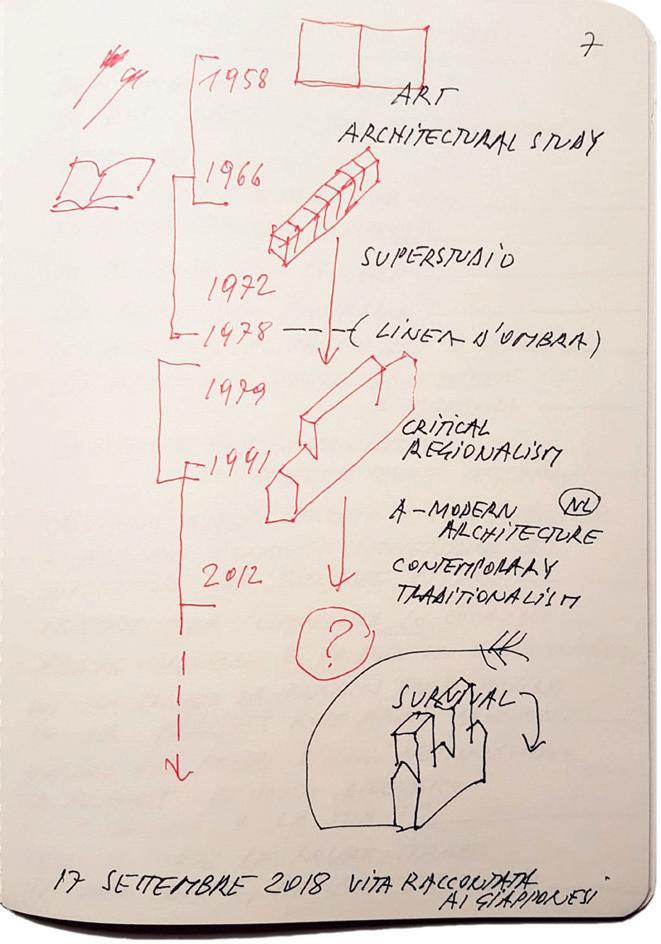 7
1958
ART
ARCHITECTURAL STUDY
1966
SUPERSTUDIO
1972
1978 ---( LINEA D'OMBRA)
1979
CRITICAL
REGIONALISM
1991
A-MODERN NL
ARCHITECTURE
CONTEMPORARY
TRADITIONALISM
2012
?
SURVIVAL
17 SETTEMBRE 2018 VITA RACCONTATA
AI GIAPPONESI